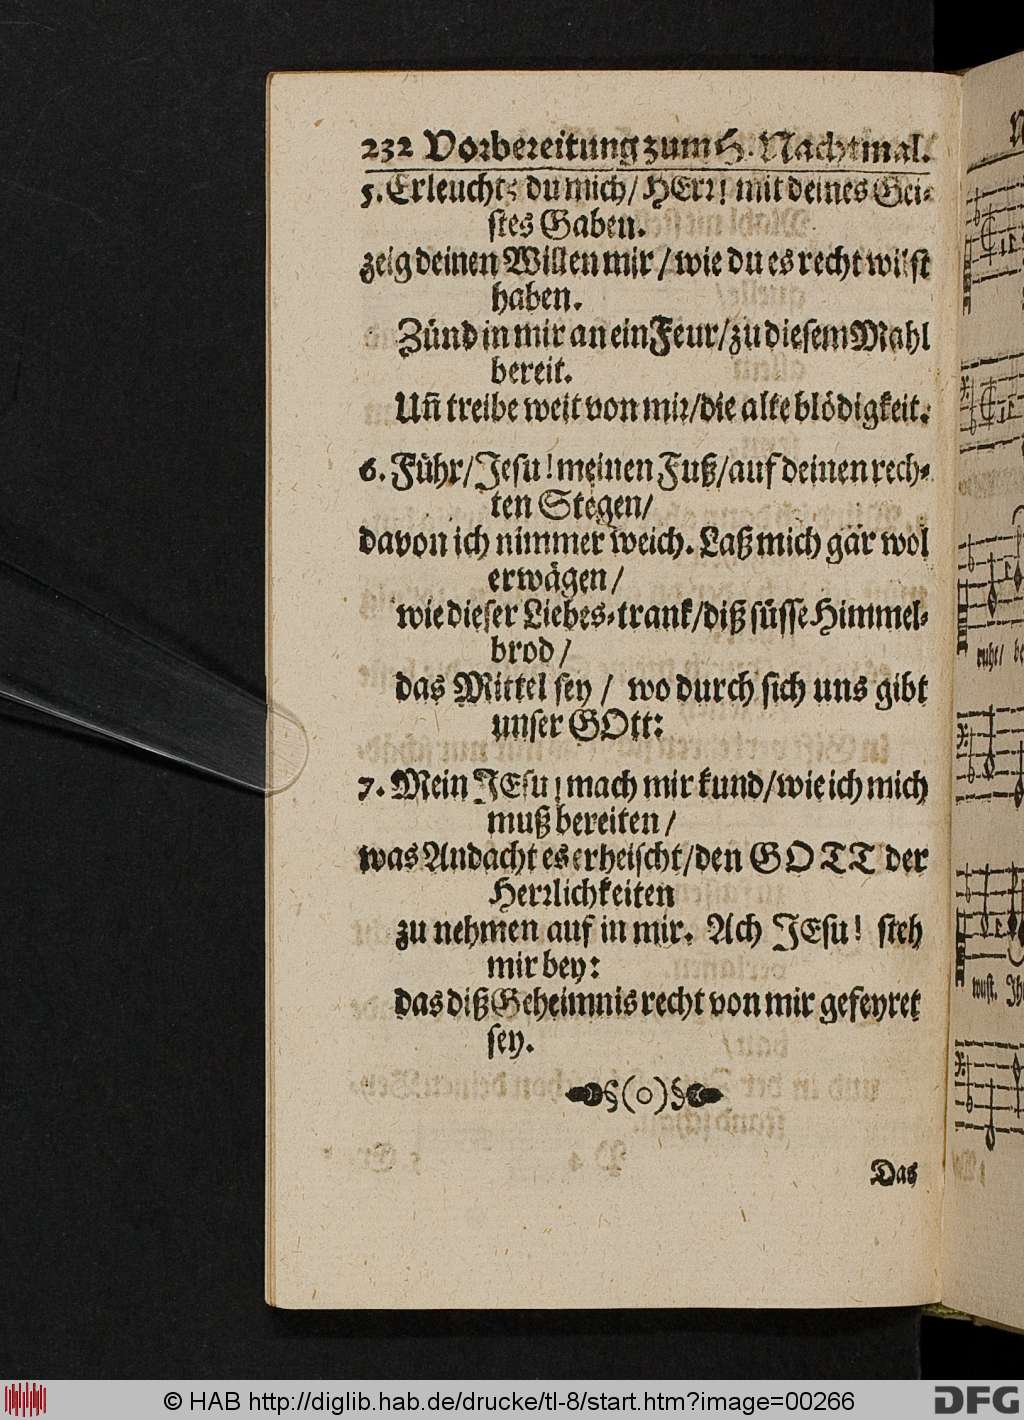 232 Vorbereitung zum H. Nachtmal.
5. Erleuchte du mich/ HErr! mit deines Gei-
stes Gaben.
zeig deinen Willen mir/ wie du es recht wilst
haben.
Zünd in mir an ein Feur/ zu diesem Mahl
bereit.
Uñ treibe weit von mir/ die alte blödigkeit.
6. Führ/ Jesu! meinen Fuß/ auf deinen rech-
ten Stegen/
davon ich nimmer weich. Laß mich gar wol
erwägen/
wie dieser Liebes-trank/ diß süsse Himmel-
brod/
das Mittel sey/ wo durch sich uns gibt
unser GOtt:
7. Mein JEsu! mach mir kund/ wie ich mich
muß bereiten/
was Andacht es erheischt/ den GOTT der
Herrlichkeiten
zu nehmen auf in mir. Ach JEsu! steh
mir bey:
das diß Geheimnis recht von mir gefeyret
sey.
§(o)§
Das
ruhe/
wust.
© HAB http://diglib.hab.de/drucke/tl-8/start.htm?image=00266
DFG